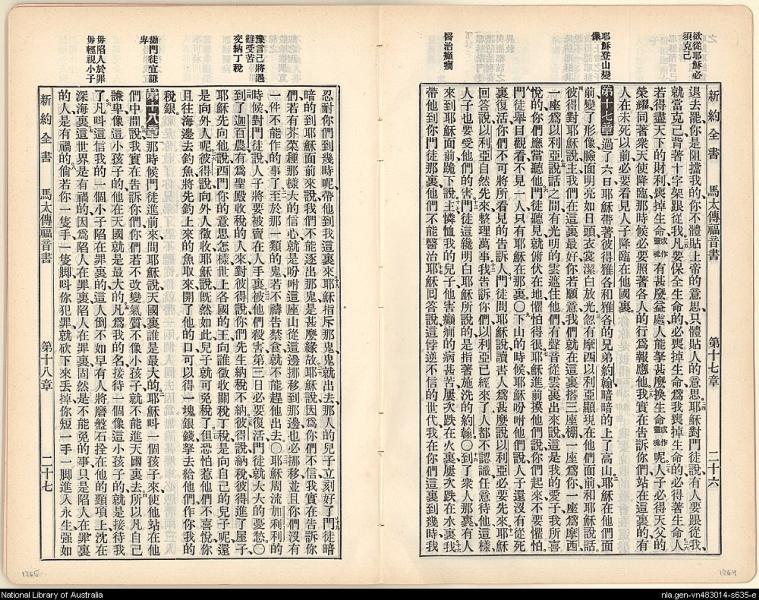 欲從耶穌必須克己
耶穌登山變像
醫治癲癇
新約全書 馬太傳福音書 第十七章 二十六
退去罷你是阻擋我的你不體貼上帝的意思只體貼人的意思耶穌對門徒說有人要跟從我
就當克己背著十字架跟從我凡要保全生命的必喪掉生命為我喪掉生命的必得著生命人
若得盡天下的財利喪掉生命有甚麼益處人能拏甚麼換生命呢人子必得天父的
榮耀同著衆天使降臨那時候必要照著各人的行為報應他我實在告訴你們站在這裏的有
人在未死以前必要看見人子降臨在他國裏
第十七章 過了六日耶穌帶著彼得雅各和雅各的兄弟約翰暗暗的上了高山耶穌在他們面
前變了形像臉面明亮如日頭衣裳潔白放光忽有摩西以利亞顯現在他們面前和耶穌說話
彼得對耶穌說主我們在這裏最好你若願意我們就在這裏搭三座棚一座為你一座為摩西
一座為以利亞說話之間有光明的雲遮住他們有聲音從雲裏出來說這是我的愛子我所喜
悅的你們應當聽他門徒聽見就俯伏在地懼怕得很耶穌進前摸他們說你們起來不要懼怕
門徒舉目觀看不見一人只有耶穌在那裏〇下山的時候耶穌吩咐他們說人子還沒有從死
裏復活你們不可將所看見的告訴人門徒問耶穌說讀書人為甚麼說以利亞必要先來耶穌
回答說以利亞自然先來整理萬事我告訴你們以利亞已經來了人都不認識任意待他這樣
人子也要受他們的害門徒這纔明白耶穌所說的是指著施洗的約翰〇到了衆人那裏有人
來到耶穌面前跪下說主憐恤我的兒子他害癲癇的病甚苦屢次跌在火裏屢次跌在水裏我
帶他到你門徒那裏他們不能醫治耶穌回答說這悖逆不信的世代我在你們這裏到幾時我
豫言己將遇難受苦
交納丁稅
誨門徒宜謙卑
毋陷人於罪毋輕視小子
忍耐你們到幾時呢帶他到我這裏來耶穌指斥那鬼鬼就出去那人的兒子立刻好了門徒暗
暗的到耶穌面前來說我們不能逐出那鬼是甚麼緣故耶穌說因為你們不信我實在告訴你
們若有芥菜種那樣大的信心就是吩咐這座山從這邊挪移到那邊也必挪移並且你們沒有
一件不能作的事了至於那一類的鬼若不禱告禁食就不能趕他出去〇耶穌周流加利利的
時候對門徒說人子將要被賣在人手裏被他們殺害第三日必要復活門徒就大大的憂愁〇
到了迦百農有為聖殿收稅的人來對彼得說你們先生納稅不納彼得說納稅彼得進了屋子
耶穌先向他說西門你的意思怎樣世上各國的王向誰徵收關稅丁稅是向自己的兒子呢還
是向外人呢彼得說向外人徵收耶穌說旣然如此兒子就可免稅了但恐怕惹他們不喜悅你
且往海邊去釣魚將先釣上來的魚取來開了他的口可以得一塊銀錢拏去給他們作你我的
稅銀
第十八章 那時候門徒進前來問耶穌說天國裏誰是最大的耶穌叫一個孩子來使他站在他
們中間說我實在告訴你們你們若不改變氣質不像小孩子就不能進天國裏去所以凡自己
謙卑像這小孩子的他在天國就是最大的凡為我的名接待一個像這小孩子的就是接待我
了凡叫這信我的一個小子陷在罪裏的這人倒不如用有人將磨盤石拴在他的頸項上沈在
深海裏這世界是有禍的因為陷人在罪裏陷人在罪裏固然是不能免的事只是陷人在罪裏
的人是有禍的倘若你一隻手一隻脚叫你犯罪就砍下來丟掉你短一手一脚進入永生強如
新約全書 馬太傳福音書 第十八章 二十七
1265
1264
National Library of Australia
nla.gen-vn483014-s635-e